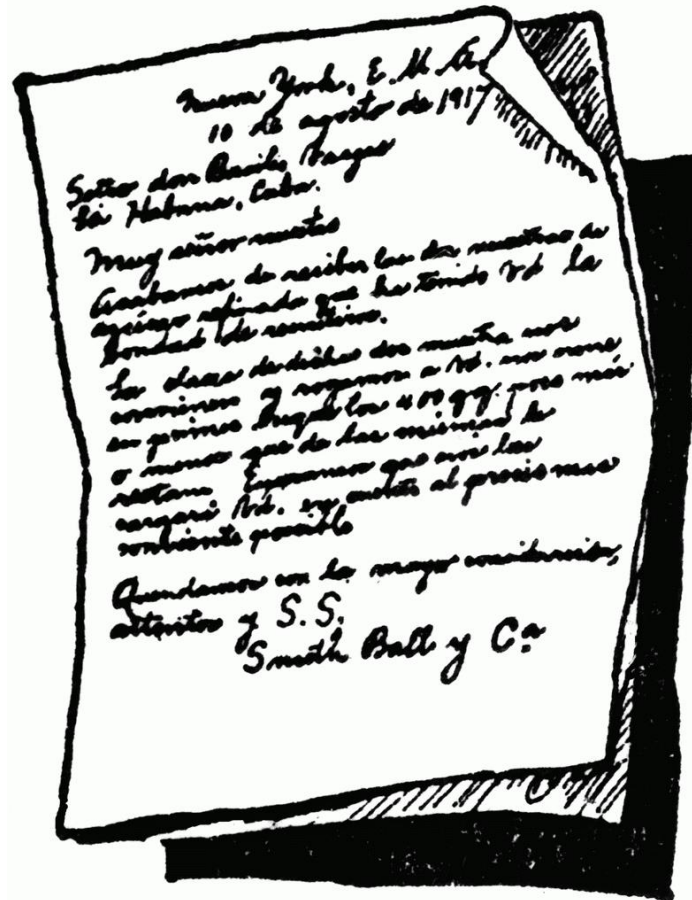 Nueva York, E. U. A.
10 de agosto de 1917
Señor don Basilio Vargas
La Habana, Cuba.
Muy señor nuestro
Acabamos de recibir las dos muestras de
azúcar refinado que ha tenido Vd la
bondad de remitirnos.
La clase de dichas dos muestra nos
conviene y rogamos a Vd. nos
en primer lugar los 400 qq. poco más
o menos que de las mismas le
restan. Esperamos que nos los
cargará Vd. en cuenta al precio mas
conveniente posible
Quedamos con la mayor consideración,
attentos y S. S.
Smith Ball y Cª